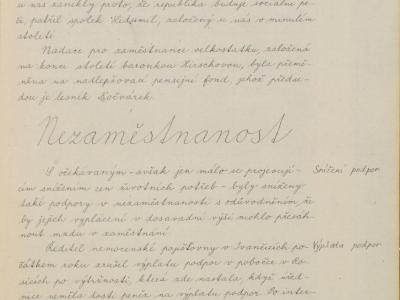 u nás zanikly proto, že republika buduje sociální pé-
či, patřil spolek Lidumil, založený u nás v minulém
století.
Nadace pro zaměstnance velkostatku, založená
na konci století baronkou Hirschovou, byla přemě-
něna na nadlepšovací pensijní fond, jehož předse-
dou je lesník Kočvárek.
Nezaměstnanost
S očekávaným - avšak jen málo se projevují-
cím snížením cen životních potřeb - byly sníženy
také podpory v nezaměstnanosti s odůvodněním, že
by jejich vyplácení v dosavadní výši mohlo přesáh-
nout mzdu v zaměstnání.
Snížení podpor
Ředitel nemocenské pojišťovny v Ivančicích po-
čátkem roku zrušil výplatu podpor v pobočce v Ro-
sicích po výtržnosti, která zde nastala, když úřed-
nice neměla dosti peněz na výplatu podpor. Po inter-
Výplata podpor